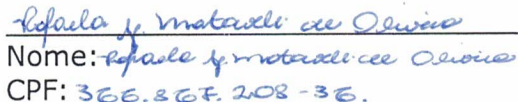 Rafaela y. Mataveli de Oliveira
Nome: Rafaela y. Mataveli de Oliveira
CPF: 366.867.208-36.